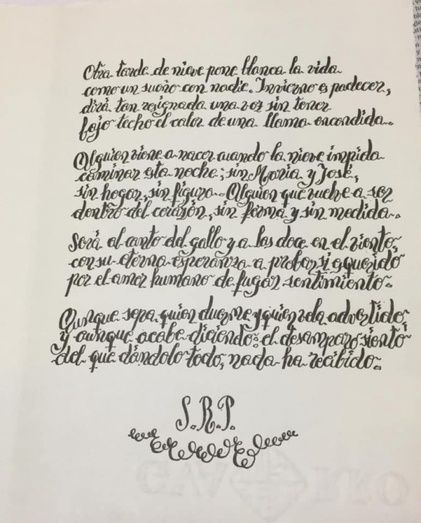 Otra tarde de nieve pone blanca la vida
como un sueño con nadie. Invierno es padecer,
dirá tan resignada una voz sin tener
bajo techo el calor de una llama encendida.
Alguien viene a nacer cuando la nieve impida
caminar esta noche; sin María y José,
sin hogar, sin figura. Alguien que vuelve a ser
dentro del corazón, sin forma y sin medida.
Será al canto del gallo y a las doce en el viento,
con su eterna esperanza a probar si es querido
por el amor humano de fugaz sentimiento.
Aunque sepa quien duerme y quien vela advertido,
y aunque acabe diciendo: el desamparo siento
del que dándolo todo, nada ha recibido.
S.R.P.